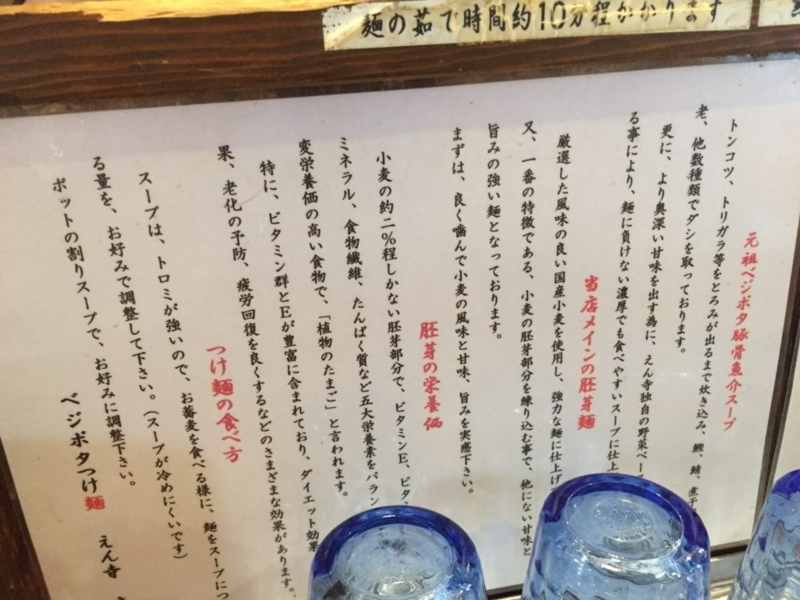 麺の茹で時間約10分程かかります
元祖ベジポタ豚骨魚介スープ
トンコツ、トリガラ等をとろみが出るまで炊き込み、鰹、鯖、煮干
老、他数種類でダシを取っております。
更に、より奥深い甘味を出す為に、えん寺独自の野菜ペー
る事により、麺に負けない濃厚でも食べやすいスープに仕上
当店メインの胚芽麺
厳選した風味の良い国産小麦を使用し、強力な麺に仕上げ
又、一番の特徴である、小麦の胚芽部分を練り込む事で、他にない甘味と
旨みの強い麺となっております。
まずは、良く噛んで小麦の風味と甘味、旨みを実感下さい。
胚芽の栄養価
小麦の約二%程しかない胚芽部分で、ビタミンE、ビタ
ミネラル、食物繊維、たんぱく質など五大栄養素をバラン
変栄養価の高い食物で、「植物のたまご」と言われます。
特に、ビタミン群とEが豊富に含まれており、ダイエット効果
果、老化の予防、疲労回復を良くするなどのさまざまな効果があります。
つけ麺の食べ方
スープは、トロミが強いので、お蕎麦を食べる様に、麺をスープにつ
る量を、お好みで調整して下さい。(スープが冷めにくいです)
ポットの割りスープで、お好みに調整下さい。
ベジポタつけ麺 えん寺